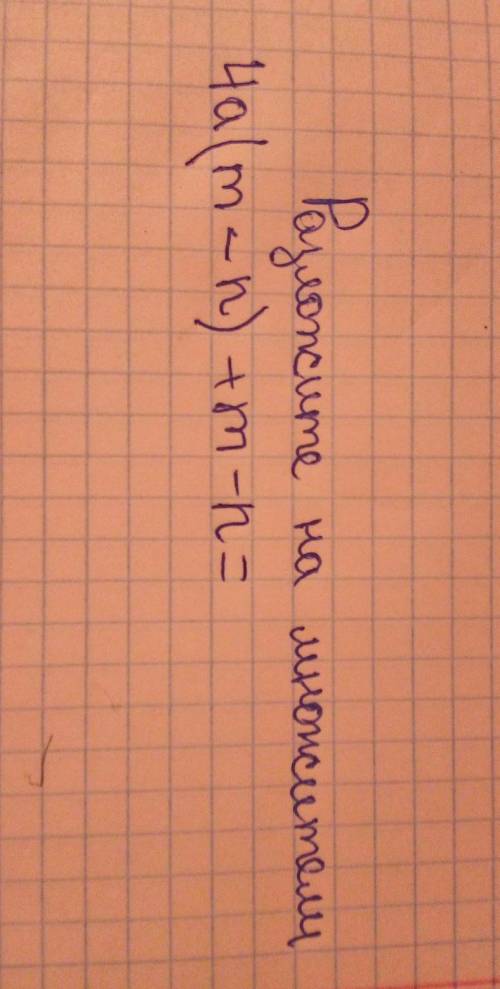 Разложите на множители
4a(m - n) + m - n =